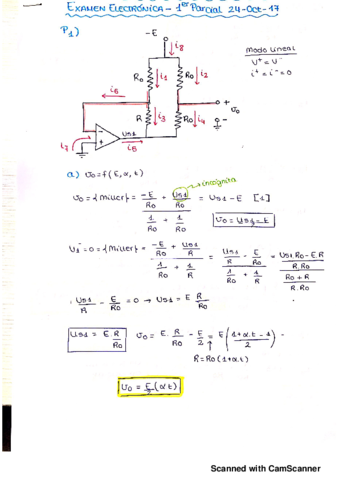 EXAMEN ELECTRÓNICA - 1er PARCIAL 24-Oct-17
P1)
-E
i8
Modo Lineal
V+ = V-
i+ = i- = 0
Ro i1 Ro i2
i6
+
R i3 Ro i4 Uo
-
i7 Us1
i5
a) Uo = f(E, α, t)
incógnita
Uo = {Miller} = (-E/Ro + Us1/Ro) / (1/Ro + 1/Ro) = Us1 - E [1]
U1- = 0 = {Miller} = (-E/Ro + Us1/R) / (1/Ro + 1/R) = (Us1/R - E/Ro) / (1/Ro + 1/R) = (Us1.Ro - E.R / R.Ro) / (Ro + R / R.Ro)
Us1/R - E/Ro = 0 → Us1 = E R/Ro
Us1 = E R/Ro Uo = E. R/Ro - E/2 = E (1+α.t - 1 / 2)
R = Ro (1+α.t)
Uo = E/2 (αt)
Scanned with CamScanner